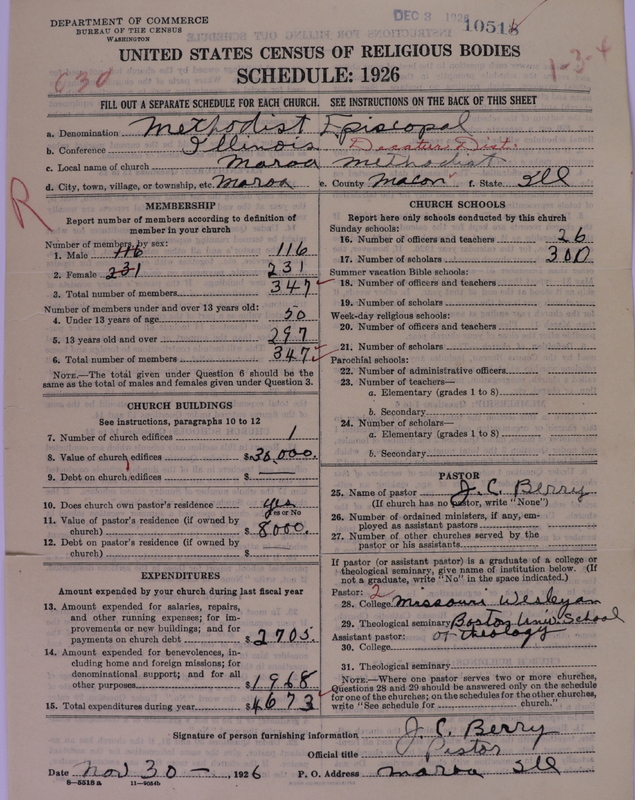 DEPARTMENT OF COMMERCE
BUREAU OF THE CENSUS
WASHINGTON
DEC 3 1926
10518
UNITED STATES CENSUS OF RELIGIOUS BODIES
SCHEDULE: 1926
030
1-3-4
FILL OUT A SEPARATE SCHEDULE FOR EACH CHURCH. SEE INSTRUCTIONS ON THE BACK OF THIS SHEET
a. Denomination Methodist Episcopal
b. Conference Illinois Decatur Dist.
c. Local name of church Maroa Methodist
d. City, town, village, or township, etc. Maroa e. County Macon f. State Ill
R
MEMBERSHIP
Report number of members according to definition of
member in your church
Number of members by sex:
1. Male 116 116
2. Female 231 231
3. Total number of members 347
Number of members under and over 13 years old:
4. Under 13 years of age 50
5. 13 years old and over 297
6. Total number of members 347
NOTE.—The total given under Question 6 should be
same as the total of males and females given under Question 3.
CHURCH BUILDINGS
See instructions, paragraphs 10 to 12
7. Number of church edifices 1
8. Value of church edifices $30,000.
9. Debt on church edifices $ —
10. Does church own pastor's residence yes
Yes or No
11. Value of pastor's residence (if owned by
church) $8000.
12. Debt on pastor's residence (if owned by
church) $ —
EXPENDITURES
Amount expended by your church during last fiscal year
13. Amount expended for salaries, repairs,
and other running expenses; for im-
provements or new buildings; and for
payments on church debt $2705
14. Amount expended for benevolences, in-
cluding home and foreign missions; for
denominational support; and for all
other purposes $1968
15. Total expenditures during year $4673
CHURCH SCHOOLS
Report here only schools conducted by this church
Sunday schools:
16. Number of officers and teachers 26
17. Number of scholars 300
Summer vacation Bible schools:
18. Number of officers and teachers
19. Number of scholars
Week-day religious schools:
20. Number of officers and teachers
21. Number of scholars
Parochial schools:
22. Number of administrative officers
23. Number of teachers—
a. Elementary (grades 1 to 8)
b. Secondary
24. Number of scholars—
a. Elementary (grades 1 to 8)
b. Secondary
PASTOR
25. Name of pastor J. C. Berry
(If church has no pastor, write "None")
26. Number of ordained ministers, if any, em-
ployed as assistant pastors
27. Number of other churches served by the
pastor or his assistants
If pastor (or assistant pastor) is a graduate of a college or
theological seminary, give name of institution below. (If
not a graduate, write "No" in the space indicated.)
Pastor: 2
28. College Missouri Wesleyan
29. Theological seminary Boston Univ. School
Assistant pastor: of Theology
30. College
31. Theological seminary
NOTE.—Where one pastor serves two or more churches,
Questions 28 and 29 should be answered only on the schedule
for one of the churches; on the schedules for the other churches,
write "See schedule for church."
Signature of person furnishing information J. C. Berry
Official title Pastor
Date Nov 30 —, 1926 P. O. Address Maroa Ill
8—5518a 11—9054b